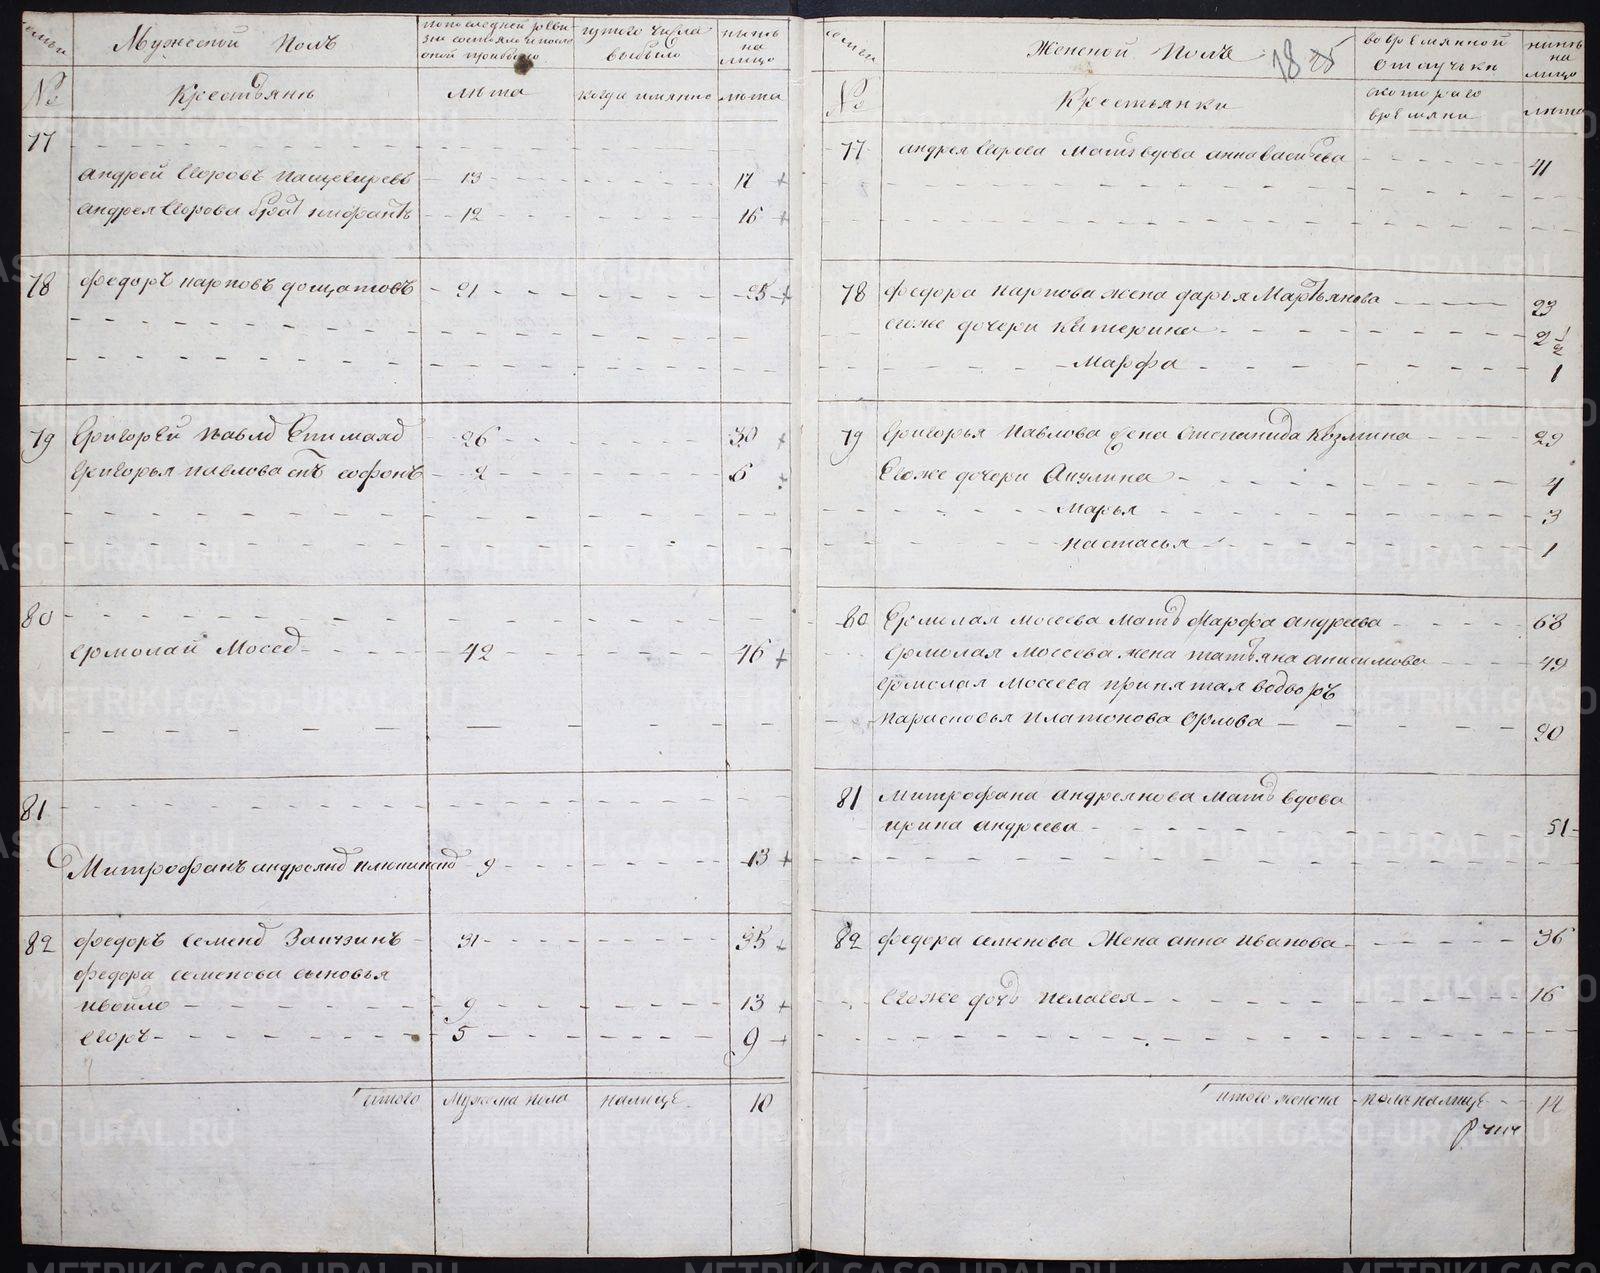 семьи
Мужеской Полъ
попоследней реви
зии состояло ипосле
оной прибыло
изтого числа
выбыло
нынѣ
на
лицо
№
Крестьянѣ
лѣта
когда имянно
лѣта
77
Андрей Егоровъ
13
17
Андрея Егорова брат
12
16
78
Федоръ Карповъ Дощатовъ
21
25
79
Григорей Павлов
26
30
Григорья Павлова сынъ Софонъ
2
6
80
Ермолай Мосеев
42
46
81
Митрофанъ Андреянов
9
13
82
Федоръ Семенов
31
35
Федора Семенова сыновья
9
13
Егоръ
5
9
итого
Мужеска пола
налице
10
семьи
Женской Полъ
18 25
вовремянной
отлучьки
нынѣ
на
лицо
№
Крестьянки
скотораго
времяни
лѣта
77
Андрея Егорова Мать вдова Анна Васильева
41
78
Федора Карпова жена Дарья Мартьянова
23
Егоже дочери Катерина
2 1/2
Марфа
1
79
Григорья Павлова жена Степанида Козмина
29
Егоже дочери Акулина
4
Марья
3
Настасья
1
80
Ермолая Мосеева мать Марфа Андреева
68
Ермолая Мосеева жена Татьяна Анисимова
49
Ермолая Мосеева принятая водворъ
Парасковья Платонова Орлова
20
81
Митрофана Андреянова Мать вдова
Ирина Андреева
51
82
Федора Семенова Жена Анна Иванова
36
Егоже дочь Пелагея
16
итого женска
пола налице
14